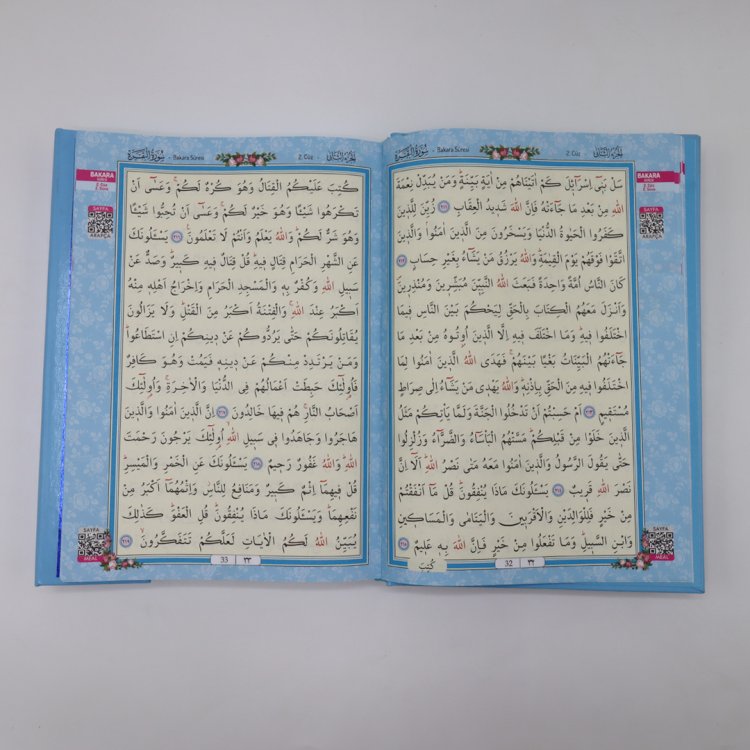 اَلْجُزْءُ الثَّانِي - 2. Cüz
سُورَةُ الْبَقَرَةِ - Bakara Sûresi
BAKARA
SAYFA
ARAPÇA
سَلْ بَنٖٓي اِسْرَٓائٖلَ كَمْ اٰتَيْنَاهُمْ مِنْ اٰيَةٍ بَيِّنَةٍ وَمَنْ يُبَدِّلْ نِعْمَةَ
اللّٰهِ مِنْ بَعْدِ مَا جَٓاءَتْهُ فَاِنَّ اللّٰهَ شَدٖيدُ الْعِقَابِ ٢١١ زُيِّنَ لِلَّذٖينَ
كَفَرُوا الْحَيٰوةُ الدُّنْيَا وَيَسْخَرُونَ مِنَ الَّذٖينَ اٰمَنُوا وَالَّذٖينَ
اتَّقَوْا فَوْقَهُمْ يَوْمَ الْقِيٰمَةِ وَاللّٰهُ يَرْزُقُ مَنْ يَشَٓاءُ بِغَيْرِ حِسَابٍ ٢١٢
كَانَ النَّاسُ اُمَّةً وَاحِدَةً فَبَعَثَ اللّٰهُ النَّبِيّٖنَ مُبَشِّرٖينَ وَمُنْذِرٖينَ
وَاَنْزَلَ مَعَهُمُ الْكِتَابَ بِالْحَقِّ لِيَحْكُمَ بَيْنَ النَّاسِ فٖيمَا
اخْتَلَفُوا فٖيهِ وَمَا اخْتَلَفَ فٖيهِ اِلَّا الَّذٖينَ اُو۫تُوهُ مِنْ بَعْدِ مَا
جَٓاءَتْهُمُ الْبَيِّنَاتُ بَغْيًا بَيْنَهُمْ فَهَدَى اللّٰهُ الَّذٖينَ اٰمَنُوا لِمَا
اخْتَلَفُوا فٖيهِ مِنَ الْحَقِّ بِاِذْنِهٖ وَاللّٰهُ يَهْدٖي مَنْ يَشَٓاءُ اِلٰى صِرَاطٍ
مُسْتَقٖيمٍ ٢١٣ اَمْ حَسِبْتُمْ اَنْ تَدْخُلُوا الْجَنَّةَ وَلَمَّا يَأْتِكُمْ مَثَلُ
الَّذٖينَ خَلَوْا مِنْ قَبْلِكُمْ مَسَّتْهُمُ الْبَأْسَٓاءُ وَالضَّرَّٓاءُ وَزُلْزِلُوا
حَتّٰى يَقُولَ الرَّسُولُ وَالَّذٖينَ اٰمَنُوا مَعَهُ مَتٰى نَصْرُ اللّٰهِ اَلَٓا اِنَّ
نَصْرَ اللّٰهِ قَرٖيبٌ ٢١٤ يَسْـَٔلُونَكَ مَاذَا يُنْفِقُونَ قُلْ مَٓا اَنْفَقْتُمْ
مِنْ خَيْرٍ فَلِلْوَالِدَيْنِ وَالْاَقْرَبٖينَ وَالْيَتَامٰى وَالْمَسَاكٖينِ
وَابْنِ السَّبٖيلِ وَمَا تَفْعَلُوا مِنْ خَيْرٍ فَاِنَّ اللّٰهَ بِهٖ عَلٖيمٌ ٢١٥
SAYFA
MEAL
32 ٣٢
كُتِبَ
اَلْجُزْءُ الثَّانِي - 2. Cüz
سُورَةُ الْبَقَرَةِ - Bakara Sûresi
BAKARA
SAYFA
ARAPÇA
كُتِبَ عَلَيْكُمُ الْقِتَالُ وَهُوَ كُرْهٌ لَكُمْ وَعَسٰٓى اَنْ
تَكْرَهُوا شَيْـًٔا وَهُوَ خَيْرٌ لَكُمْ وَعَسٰٓى اَنْ تُحِبُّوا شَيْـًٔا
وَهُوَ شَرٌّ لَكُمْ وَاللّٰهُ يَعْلَمُ وَاَنْتُمْ لَا تَعْلَمُونَ ٢١٦ يَسْـَٔلُونَكَ
عَنِ الشَّهْرِ الْحَرَامِ قِتَالٍ فٖيهِ قُلْ قِتَالٌ فٖيهِ كَبٖيرٌ وَصَدٌّ عَنْ
سَبٖيلِ اللّٰهِ وَكُفْرٌ بِهٖ وَالْمَسْجِدِ الْحَرَامِ وَاِخْرَاجُ اَهْلِهٖ مِنْهُ
اَكْبَرُ عِنْدَ اللّٰهِ وَالْفِتْنَةُ اَكْبَرُ مِنَ الْقَتْلِ وَلَا يَزَالُونَ
يُقَاتِلُونَكُمْ حَتّٰى يَرُدُّوكُمْ عَنْ دٖينِكُمْ اِنِ اسْتَطَاعُوا
وَمَنْ يَرْتَدِدْ مِنْكُمْ عَنْ دٖينِهٖ فَيَمُتْ وَهُوَ كَافِرٌ
فَاُو۬لٰٓئِكَ حَبِطَتْ اَعْمَالُهُمْ فِي الدُّنْيَا وَالْاٰخِرَةِ وَاُو۬لٰٓئِكَ
اَصْحَابُ النَّارِ هُمْ فٖيهَا خَالِدُونَ ٢١٧ اِنَّ الَّذٖينَ اٰمَنُوا وَالَّذٖينَ
هَاجَرُوا وَجَاهَدُوا فٖي سَبٖيلِ اللّٰهِ اُو۬لٰٓئِكَ يَرْجُونَ رَحْمَتَ
اللّٰهِ وَاللّٰهُ غَفُورٌ رَحٖيمٌ ٢١٨ يَسْـَٔلُونَكَ عَنِ الْخَمْرِ وَالْمَيْسِرِ
قُلْ فٖيهِمَٓا اِثْمٌ كَبٖيرٌ وَمَنَافِعُ لِلنَّاسِ وَاِثْمُهُمَٓا اَكْبَرُ مِنْ
نَفْعِهِمَا وَيَسْـَٔلُونَكَ مَاذَا يُنْفِقُونَ قُلِ الْعَفْوَ كَذٰلِكَ
يُبَيِّنُ اللّٰهُ لَكُمُ الْاٰيَاتِ لَعَلَّكُمْ تَتَفَكَّرُونَ ٢١٩
SAYFA
MEAL
33 ٣٣